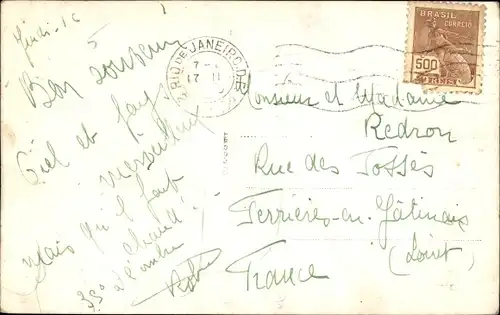 Jeudi 16
Bon souvenir
Ciel et
merveilleux
Mais qu'il fait
chaud!
35° à l'ombre
RIO DE JANEIRO. D.F.
BRASIL
CORREIO
500
REIS
Monsieur et Madame
Redron
Rue des Fossés
Ferrières-en-Gâtinais
(Loiret)
France